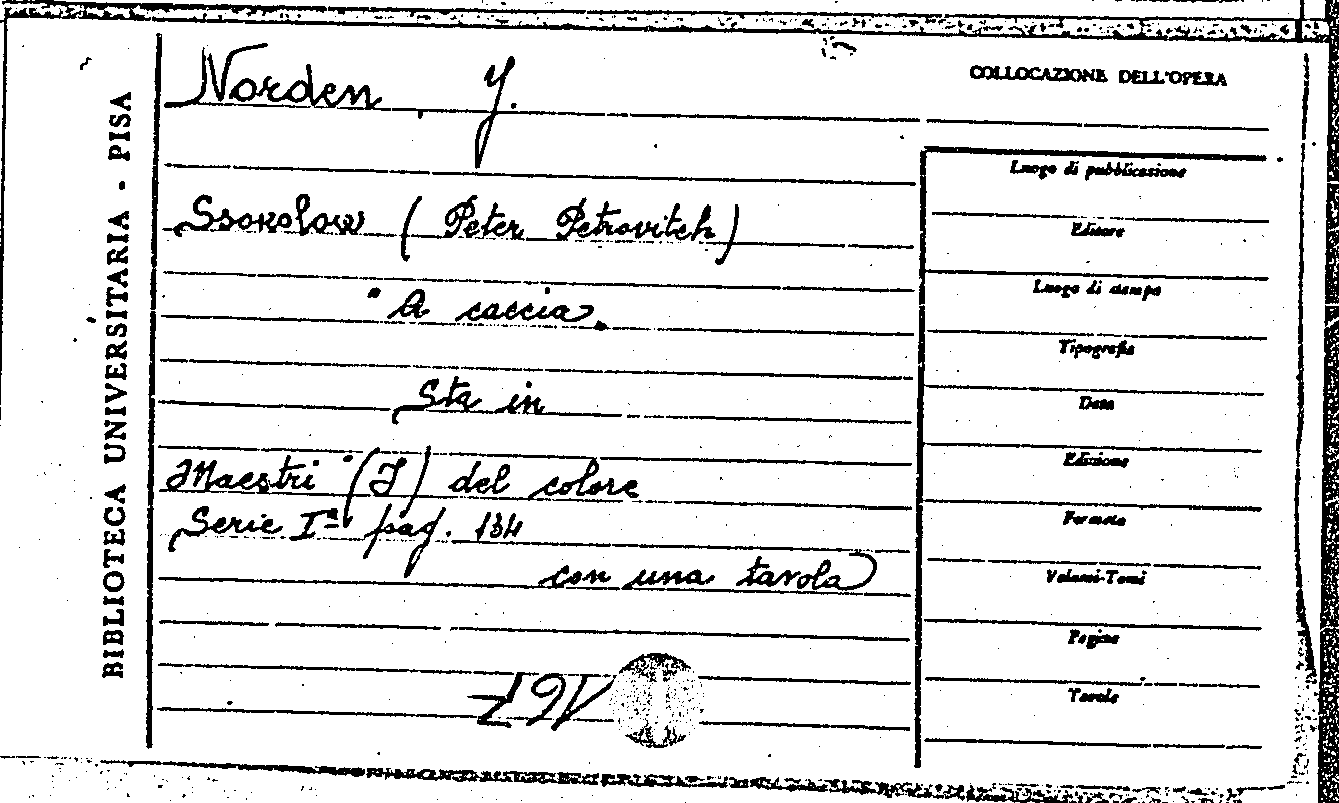 Norden, J.
COLLOCAZIONE DELL'OPERA
BIBLIOTECA UNIVERSITARIA - PISA
Ssokolow (Peter Petrovitch)
"A caccia.
Sta in
Maestri (I) del colore
Serie Iª pag. 134
con una tavola
Luogo di pubblicazione
Editore
Luogo di stampa
Tipografia
Data
Edizione
Formato
Volumi-Tomi
Pagine
Tavole